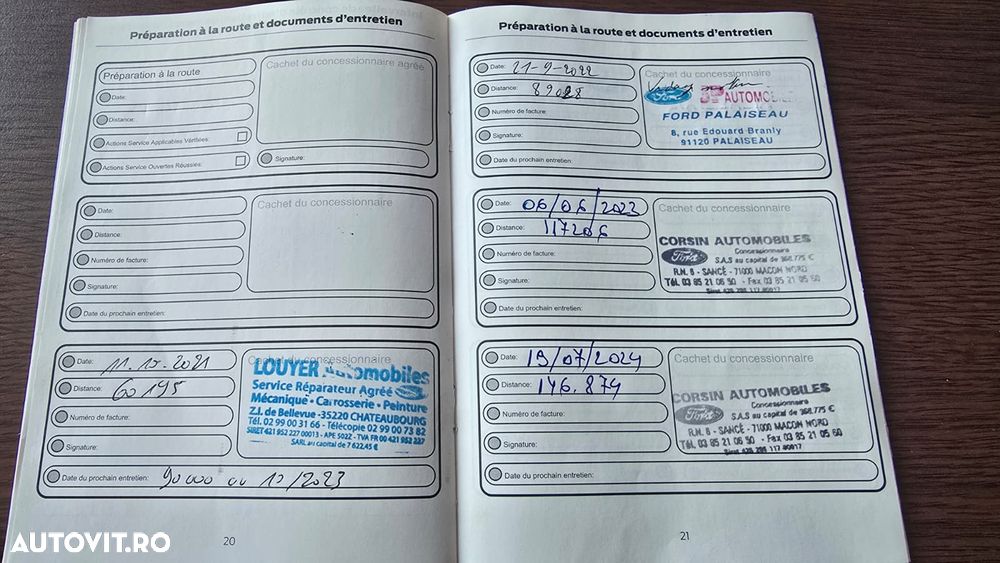 Préparation à la route et documents d'entretien
Préparation à la route
Date:
Distance:
Actions Service Applicables Vérifiées:
Actions Service Ouvertes Réussies:
Cachet du concessionnaire agréé
Signature:
Date:
Distance:
Numéro de facture:
Signature:
Date du prochain entretien:
Cachet du concessionnaire
Date: 11.10.2021
Distance: 60195
Numéro de facture:
Signature:
Date du prochain entretien: 90000 ou 10/2023
Cachet du concessionnaire
LOUYER Automobiles
Service Réparateur Agréé
Mécanique • Carrosserie • Peinture
Z.I. de Bellevue - 35220 CHATEAUBOURG
Tél. 02 99 00 31 66 - Télécopie 02 99 00 73 82
SIRET 421 952 227 00013 - APE 502Z - TVA FR 00 421 952 227
SARL au capital de 7 622,45 €
20
Préparation à la route et documents d'entretien
Date: 21-9-2022
Distance: 89028
Numéro de facture:
Signature:
Date du prochain entretien:
Cachet du concessionnaire
Ford AUTOMOBILE
FORD PALAISEAU
8, rue Edouard Branly
91120 PALAISEAU
Date: 06/06/2023
Distance: 117206
Numéro de facture:
Signature:
Date du prochain entretien:
Cachet du concessionnaire
CORSIN AUTOMOBILES
Ford
Concessionnaire
S.A.S au capital de 368.775 €
R.N. 6 - SANCÉ - 71000 MACON NORD
Tél. 03 85 21 06 50 - Fax 03 85 21 05 60
Date: 19/07/2024
Distance: 146.874
Numéro de facture:
Signature:
Date du prochain entretien:
Cachet du concessionnaire
CORSIN AUTOMOBILES
Ford
Concessionnaire
S.A.S au capital de 368.775 €
R.N. 6 - SANCÉ - 71000 MACON NORD
Tél. 03 85 21 06 50 - Fax 03 85 21 05 60
21
AUTOVIT.RO